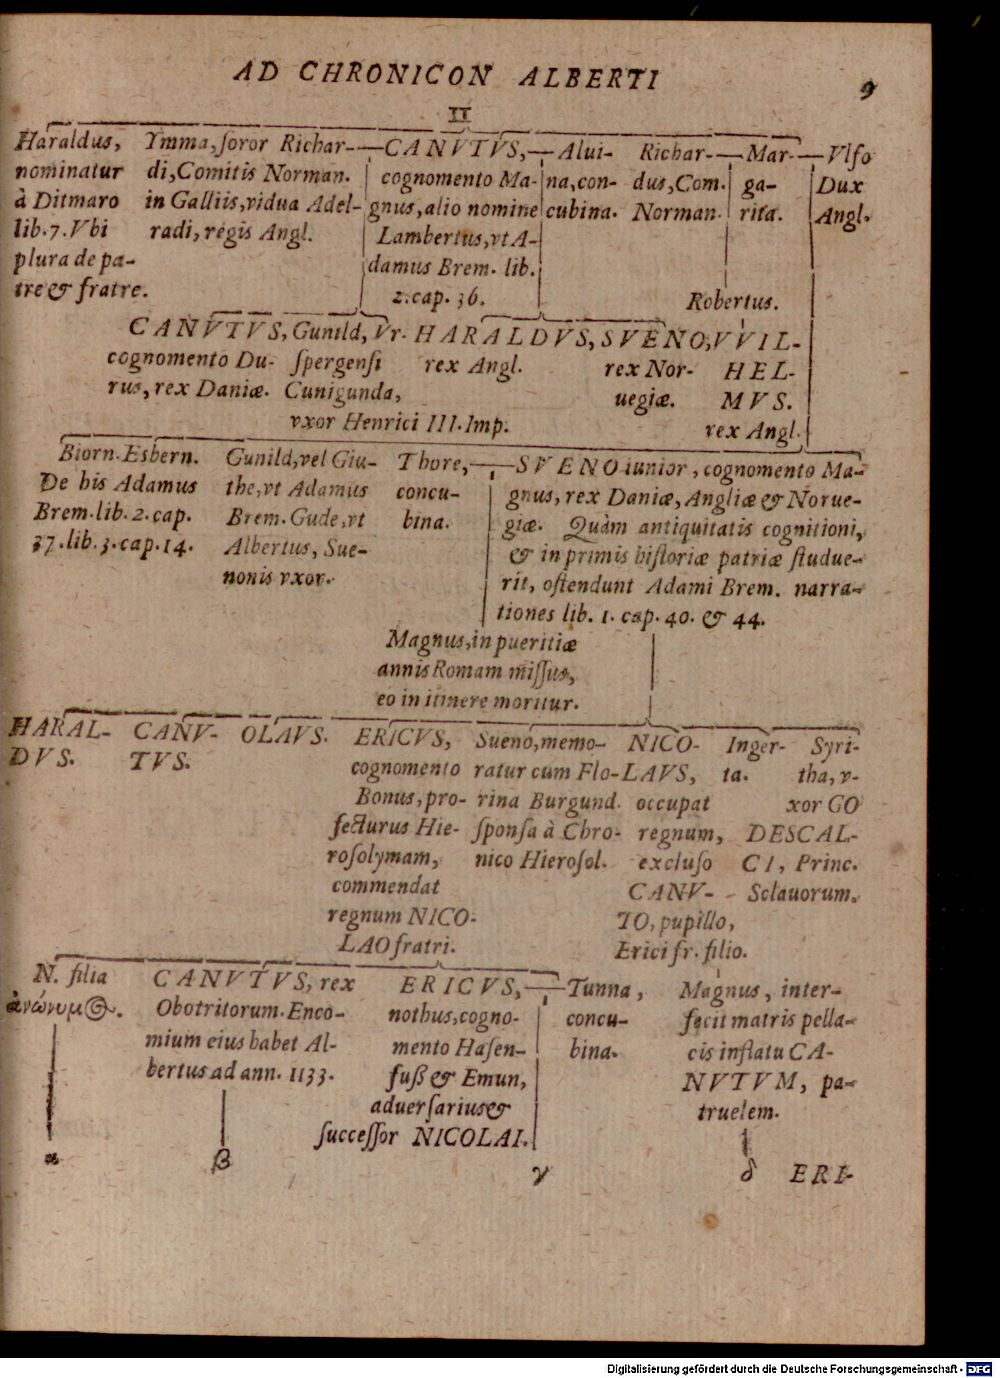 AD CHRONICON ALBERTI
9
II
Haraldus,
nominatur
à Ditmaro
lib. 7. Vbi
plura de pa-
tre & fratre.
Ymma, soror Richar-
di, Comitis Norman.
in Galliis, vidua Adel-
radi, regis Angl.
CANVTVS,
cognomento Ma-
gnus, alio nomine
Lambertus, vt A-
damus Brem. lib.
2. cap. 36.
Alui-
na, con-
cubina.
Richar-
dus, Com.
Norman.
Mar-
ga-
rita.
Vlfo
Dux
Angl.
Robertus.
CANVTVS,
cognomento Du-
rus, rex Daniæ.
Gunild, Vr-
spergensi
Cunigunda,
vxor Henrici III. Imp.
HARALDVS,
rex Angl.
SVENO,
rex Nor-
uegiæ.
VVIL-
HEL-
MVS.
rex Angl.
Biorn. Esbern.
De his Adamus
Brem. lib. 2. cap.
37. lib. 3. cap. 14.
Gunild, vel Giu-
the, vt Adamus
Brem. Gude, vt
Albertus, Sue-
nonis vxor.
Thore,
concu-
bina.
SVENO iunior, cognomento Ma-
gnus, rex Daniæ, Angliæ & Norue-
giæ. Quàm antiquitatis cognitioni,
& in primis historiæ patriæ studue-
rit, ostendunt Adami Brem. narra-
tiones lib. 1. cap. 40. & 44.
Magnus, in pueritiæ
annis Romam missus,
eo in itinere moritur.
HARAL-
DVS.
CANV-
TVS.
OLAVS.
ERICVS,
cognomento
Bonus, pro-
fecturus Hie-
rosolymam,
commendat
regnum NICO-
LAO fratri.
Sueno, memo-
ratur cum Flo-
rina Burgund.
sponsa à Chro-
nico Hierosol.
NICO-
LAVS,
occupat
regnum,
excluso
CANV-
TO, pupillo,
Erici fr. filio.
Inger-
ta.
Syri-
tha, v-
xor GO
DESCAL-
CI, Princ.
Sclauorum.
N. filia
ἀνώνυμος.
CANVTVS, rex
Obotritorum. Enco-
mium eius habet Al-
bertus ad ann. 1133.
ERICVS,
nothus, cogno-
mento Hasen-
fuß & Emun,
aduersarius &
successor NICOLAI.
Tunna,
concu-
bina.
Magnus, inter-
fecit matris pella-
cis inflatu CA-
NVTVM, pa-
truelem.
α
β
γ
δ
ERI-
Digitalisierung gefördert durch die Deutsche Forschungsgemeinschaft - DFG